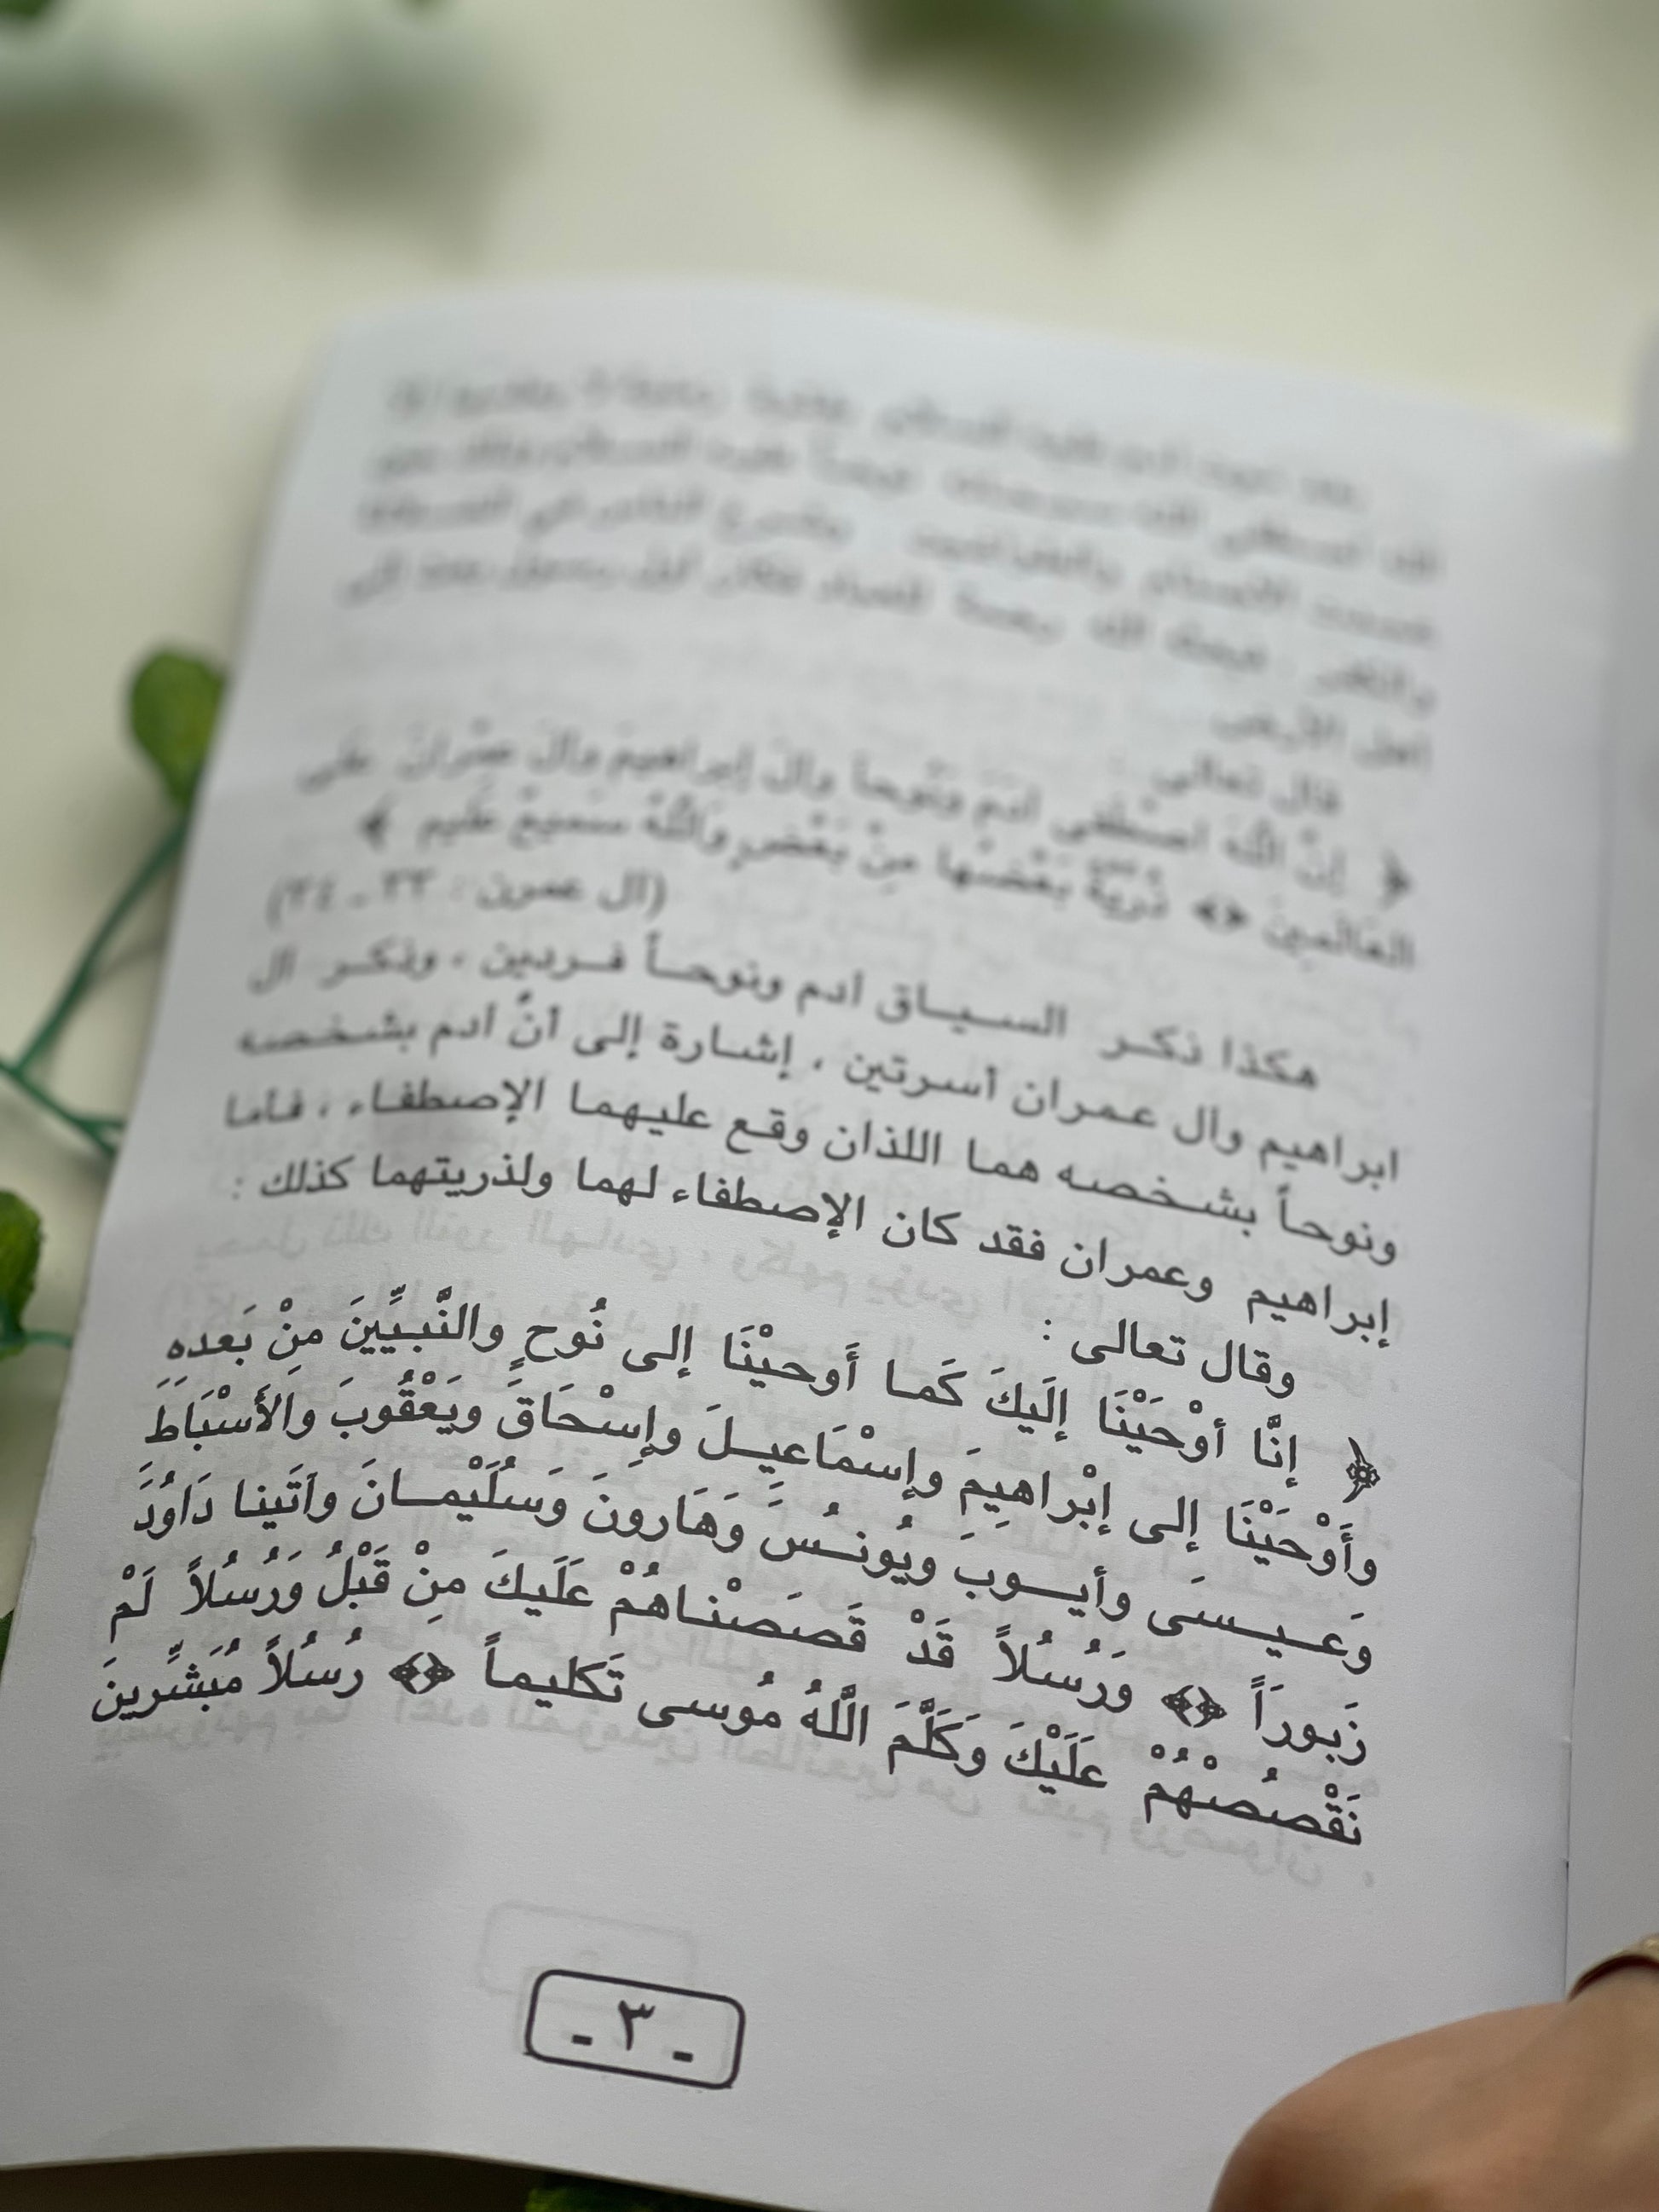 قال تعالى :
﴿ إنَّ اللَّهَ اصْطَفى آدَمَ ونُوحاً وآلَ إبراهيمَ وآلَ عِمْرانَ على
العَالَمِينَ ﴿﴾ ذُرِّيَّةً بَعْضُها مِنْ بَعْضٍ واللَّهُ سَميعٌ عَليم ﴾
(آل عمرن : ٣٣ ـ ٣٤)
هكذا ذكر السياق آدم ونوحاً فردين ، وذكر آل
ابراهيم وآل عمران أسرتين ، إشارة إلى أنَّ آدم بشخصه
ونوحاً بشخصه هما اللذان وقع عليهما الإصطفاء ، فأما
إبراهيم وعمران فقد كان الإصطفاء لهما ولذريتهما كذلك :
وقال تعالى :
﴿ إنَّا أوْحَيْنَا إلَيكَ كَما أَوحيْنَا إلى نُوحٍ والنَّبيِّينَ منْ بَعدهِ
وأَوْحَيْنَا إلى إبْراهِيمَ وإسْمَاعيِلَ وإسْحَاقَ ويَعْقُوبَ والأَسْبَاطَ
وَعيسَى وأيوبَ ويُونُسَ وَهَارونَ وَسُلَيْمانَ وآتَينا دَاوُدَ
زَبورَاً ﴿﴾ ورُسُلاً قَدْ قَصَصْناهُمْ عَلَيكَ مِنْ قَبْلُ وَرُسُلاً لَمْ
نَقْصُصْهُمْ عَلَيْكَ وَكَلَّمَ اللَّهُ مُوسى تَكليماً ﴿﴾ رُسُلاً مُبَشِّرينَ
ـ ٣ ـ